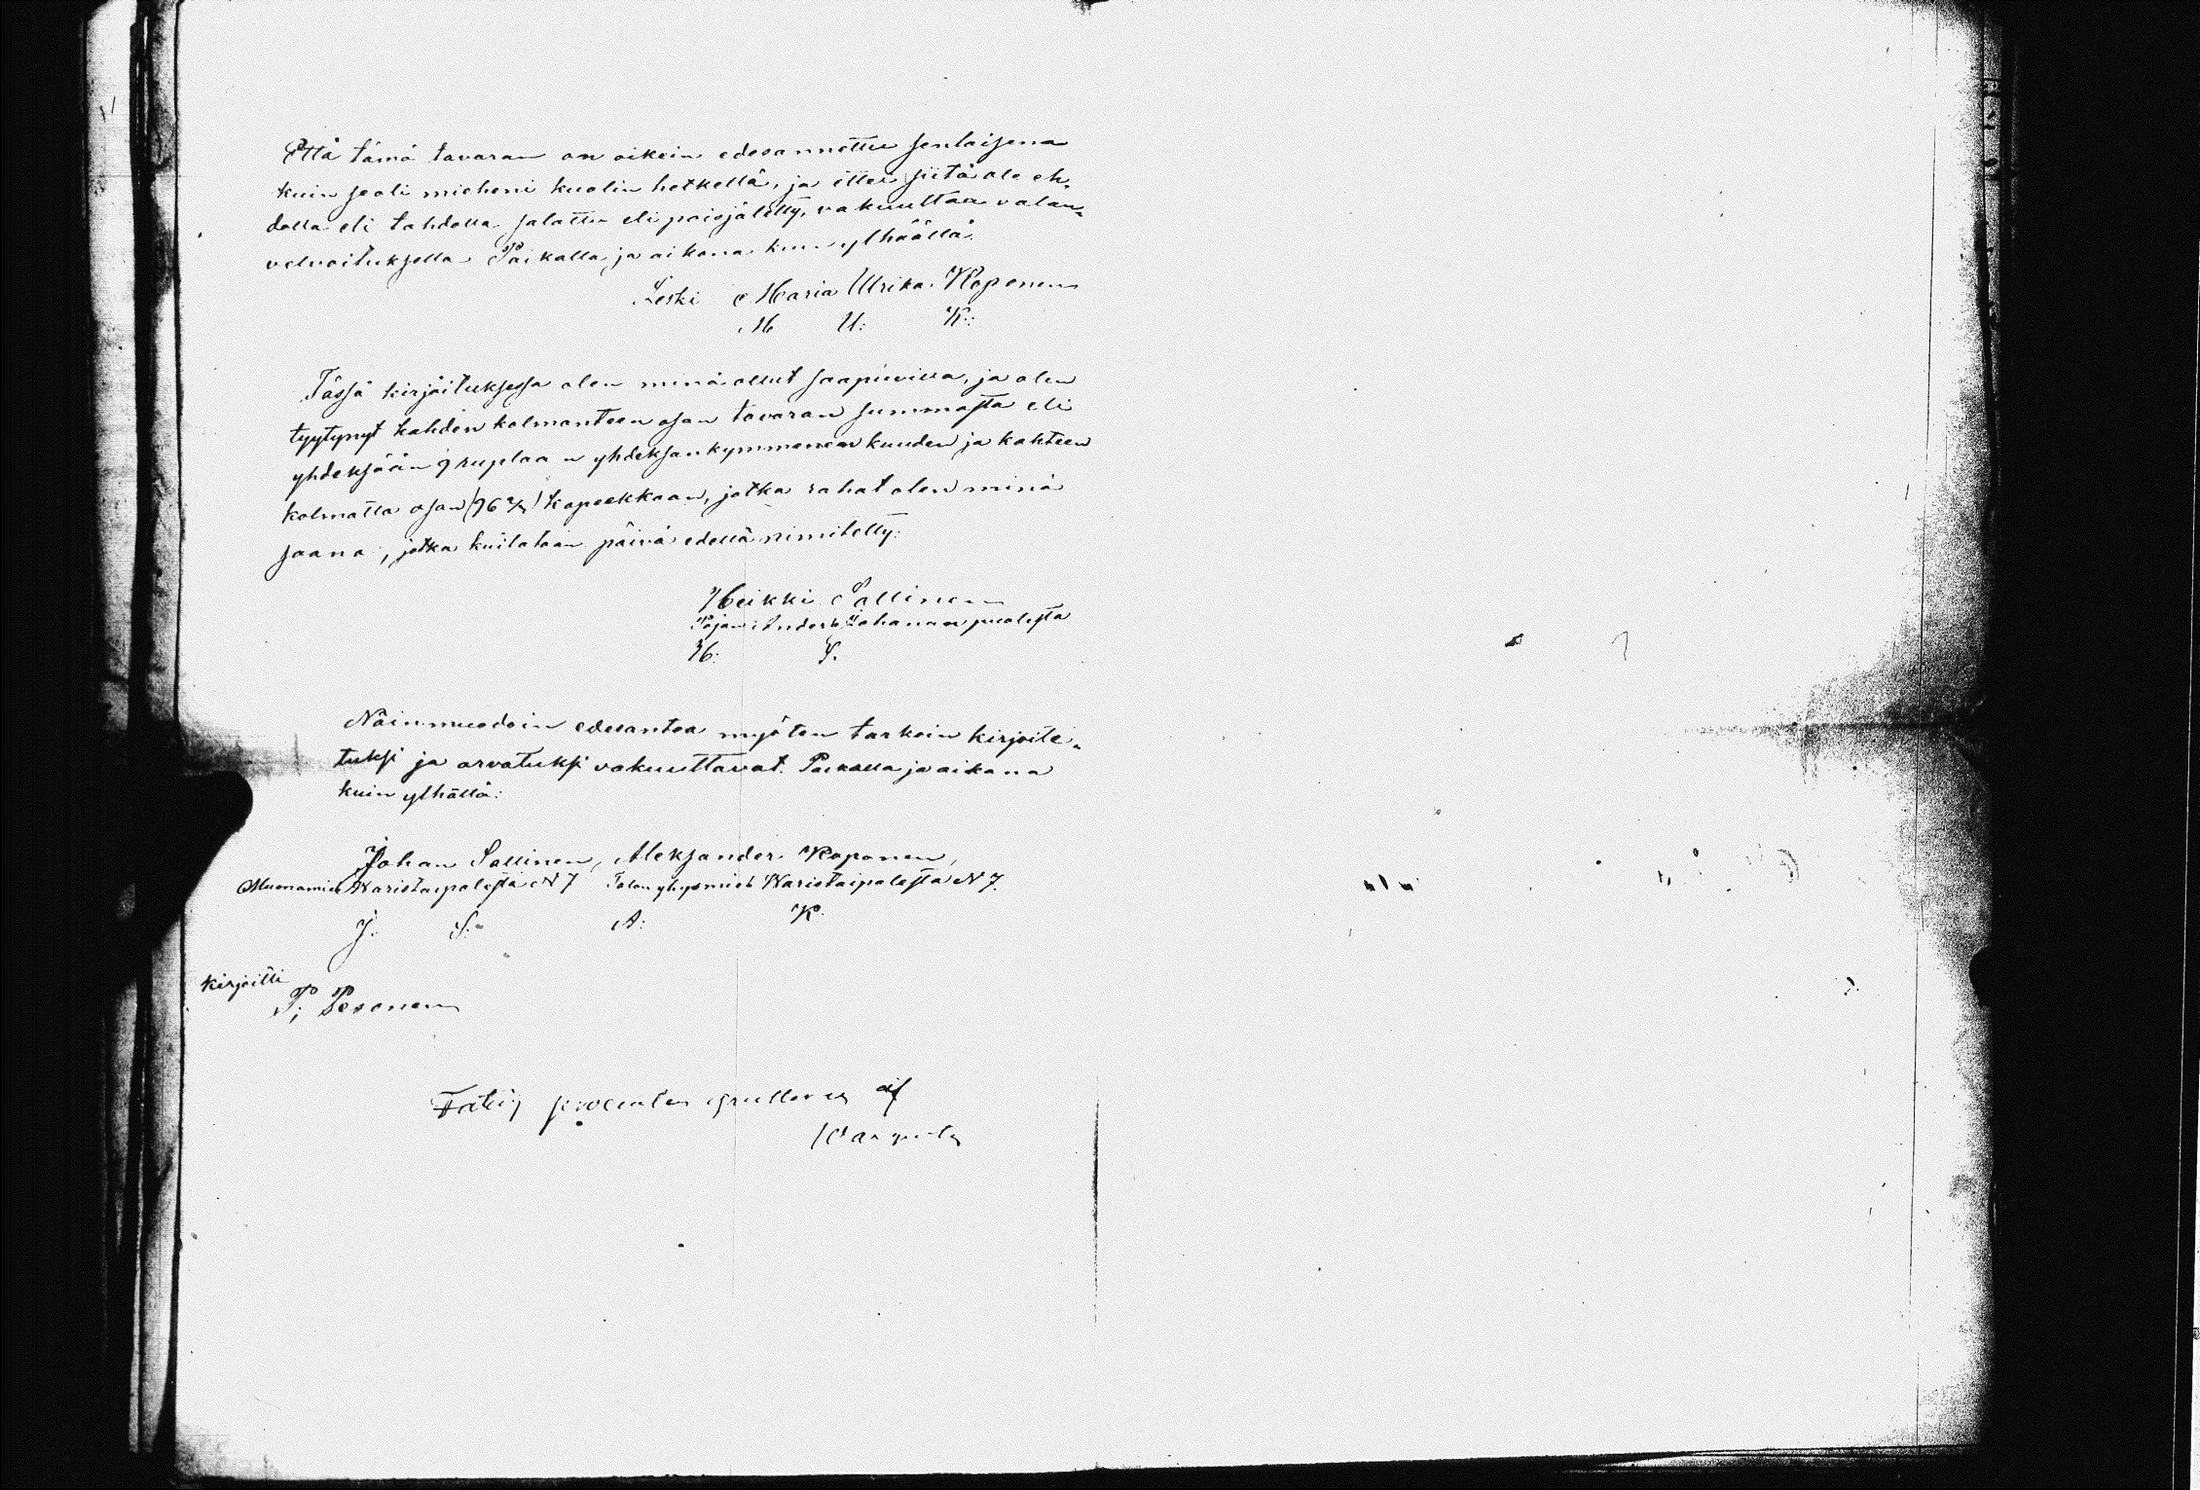 Että tämä tavaran on oikein edesannettu senlaisena
kuin se oli mieheni kuolin hetkellä, ja ettei siitä ole eh-
dolla eli tahdolla salattu eli poisjätetty, vakuuttaa valan-
velvoituksella Paikalla ja aikana kuin ylhäällä.
Leski Maria Ulrika Koponen
M U: K:
Tässä kirjoituksessa olen minä ollut saapuvilla, ja olen
tyytynyt kahden kolmanteen osan tavaran summasta eli
yhdeksään 9 ruplaan yhdeksankymmenen kuuden ja kahteen
kolmatta osan (96 2/3) kopeekkaan, jotka rahat olen minä
saana, jotka kuitataan päivä edellä nimitetty:
Heikki Sallinen
Pojan Anders Johanan puolesta
H: S.
Näinmuodoin edesantoa myöten tarkoin kirjoite-
tuksi ja arvatuksi vakuuttavat. Paikalla ja aikana
kuin ylhällä:
Johan Sallinen, Aleksander Koponen,
Muonamies Karistaipalesta N 7 Talon yhysmies Karistaipalesta N 7.
J: S: A: K:
Kirjoitti
P; Pesonen
Fattig procenten af